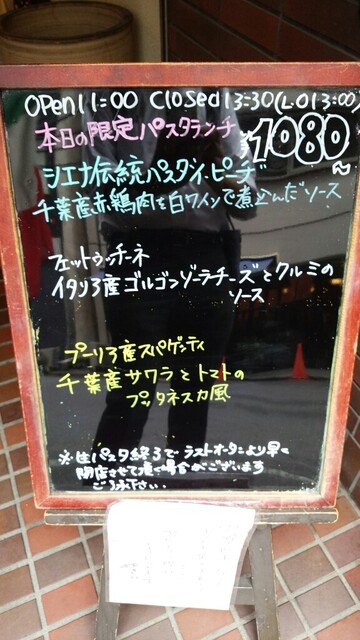 OPEN 11:00 Closed 13:30(L.O 13:00)
本日の限定パスタランチ ¥1080~
シエナ伝統パスタ、イ・ピーチ
千葉産赤鶏肉を白ワインで煮込んだソース
フェットゥッチーネ
イタリア産ゴルゴンゾーラチーズとクルミの
ソース
プーリア産スパゲッティ
千葉産サワラとトマトの
プッタネスカ風
※生パスタ終了で ラストオーダーより早く
閉店させて頂く場合がございます
ご了承下さい。